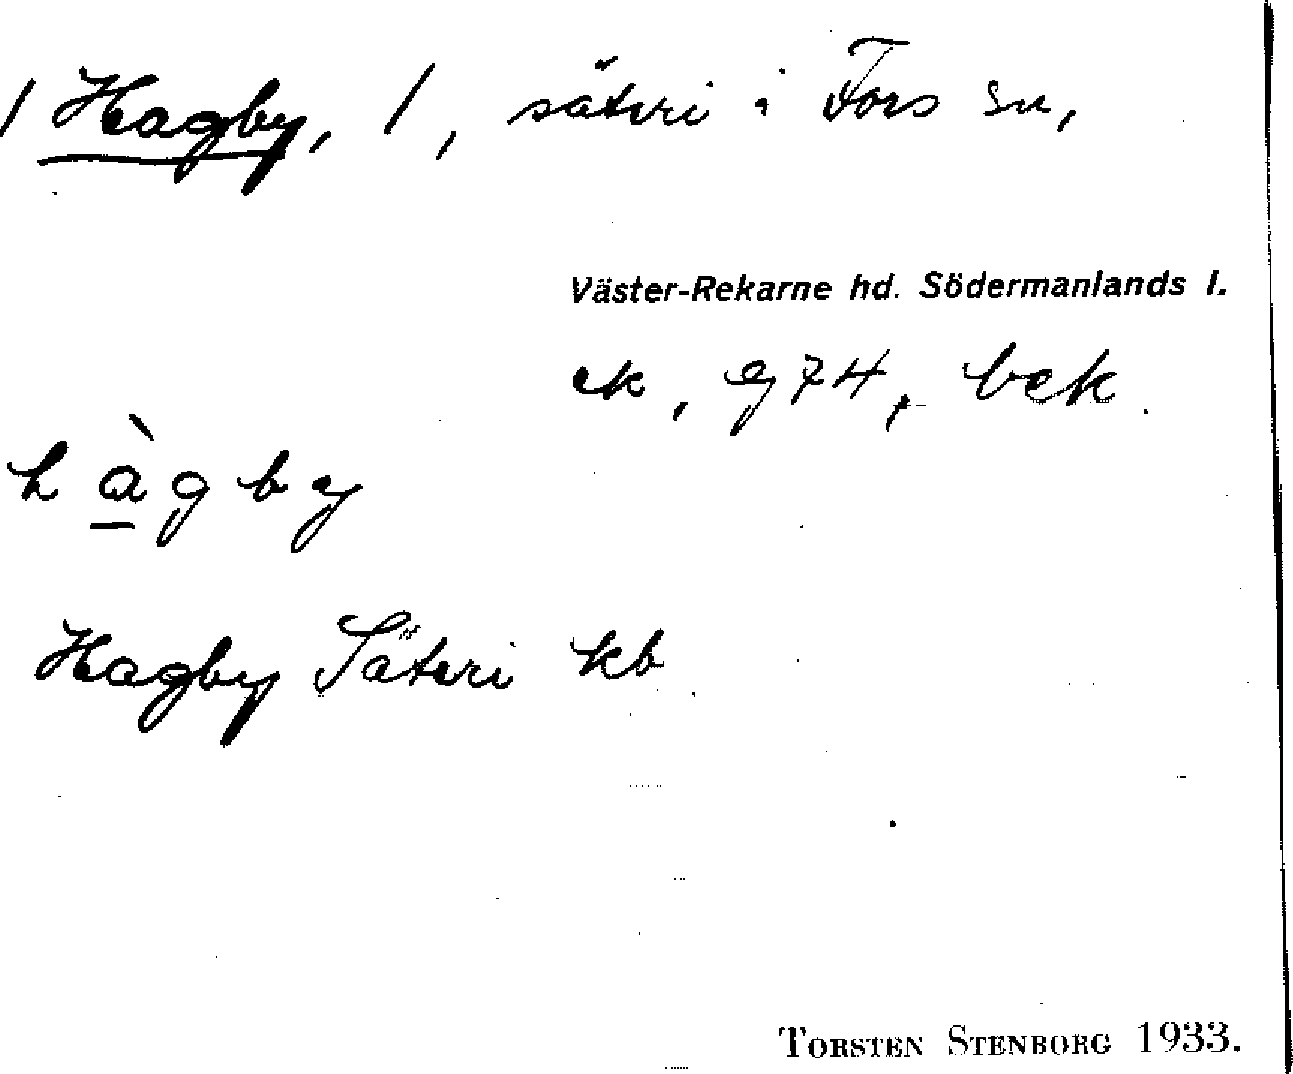 / Hagby, /, säteri i Fors sn,
Väster-Rekarne hd. Södermanlands l.
ek, g74, bek.
hàgby
Hagby Säteri kb
TORSTEN STENBORG 1933.